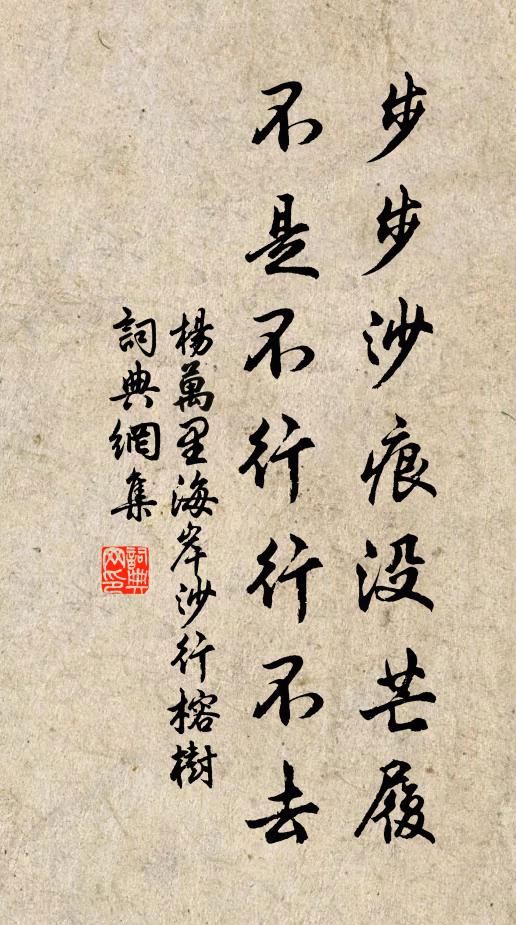 步步沙痕没芒履
不是不行行不去
楊萬里海岸沙行榕樹
詞典網集
詞典网印